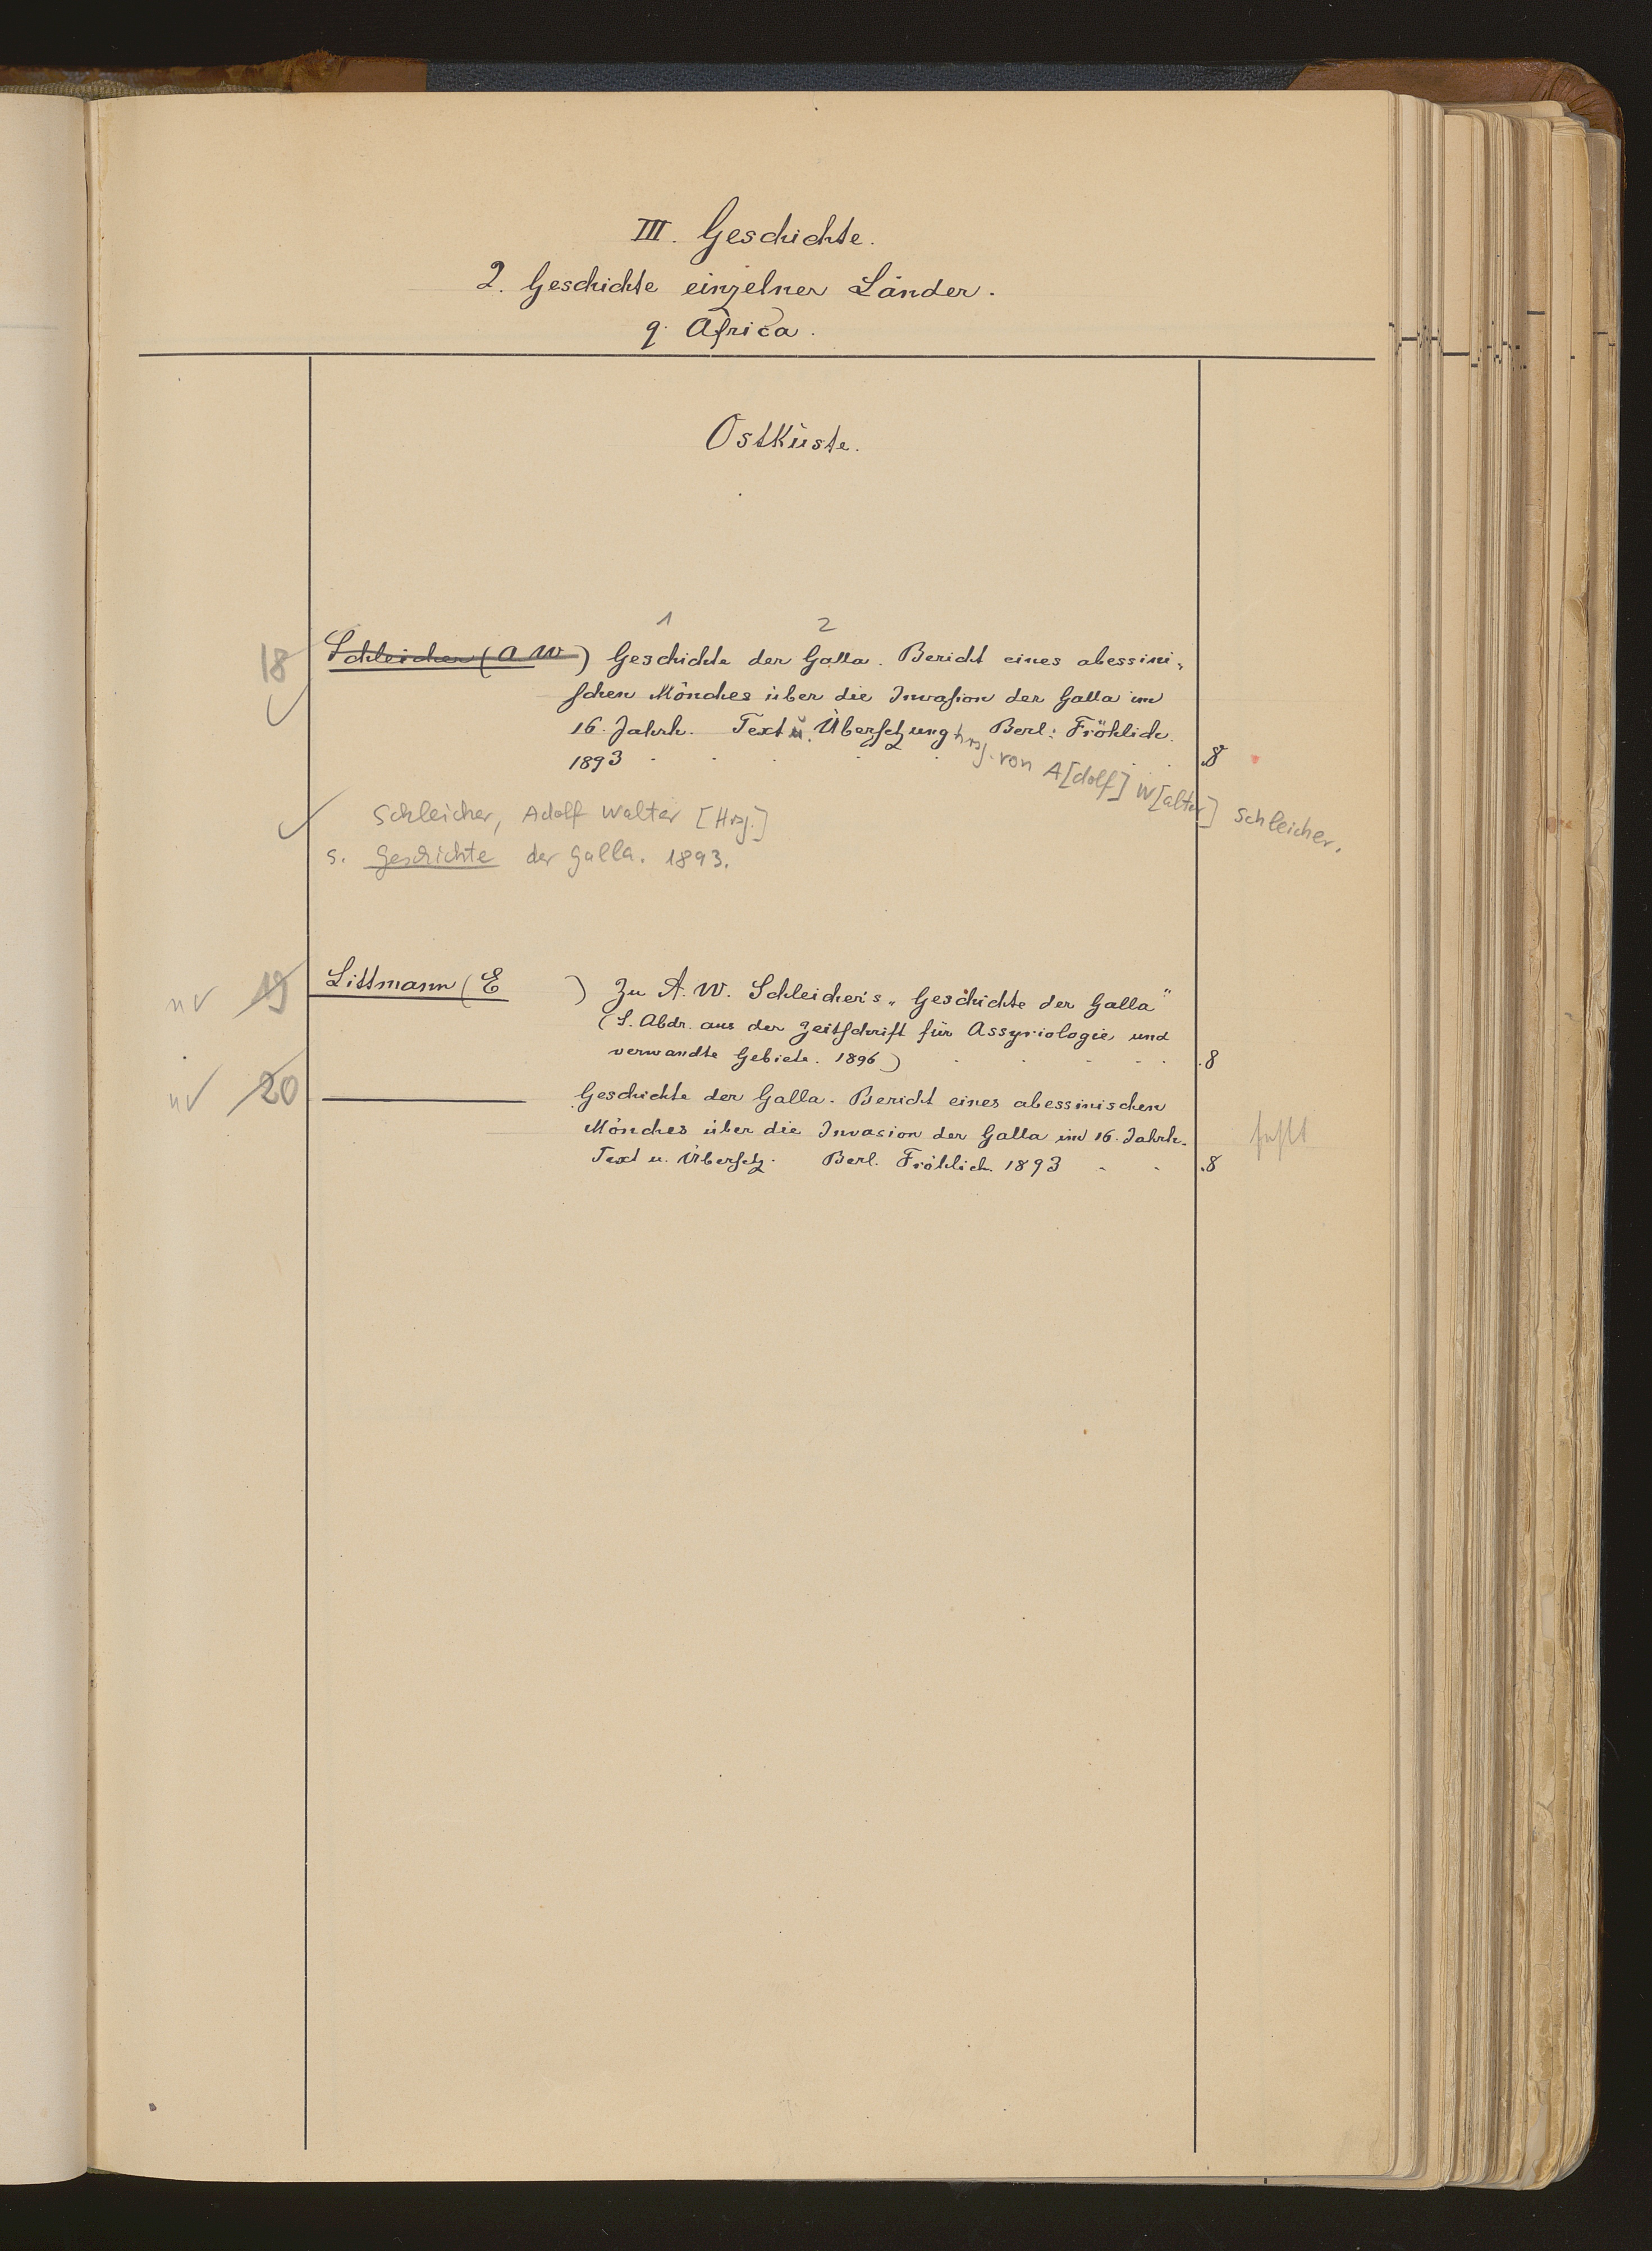 III. Geschichte.
2. Geschichte einzelner Länder.
q. Africa.
Ostküste.
1 2
18 Schleicher (A W ) Geschichte der Galla. Bericht eines abessini-
schen Mönches über die Invasion der Galla im
16. Jahrh. Text u. Übersetzung hrsg. von A[dolf] W[alter] Schleicher. Berl: Fröhlich.
1893 . . . . . . 8
Schleicher, Adolf Walter [Hrsg.]
s. Geschichte der Galla. 1893.
nv 19 Littmann (E ) Zu A. W. Schleicher's „Geschichte der Galla"
(S. Abdr. aus der Zeitschrift für Assyriologie und
verwandte Gebiete. 1896) . . . . . 8
nv 20 ——— Geschichte der Galla. Bericht eines abessinischen
Mönches über die Invasion der Galla im 16. Jahrh. fehlt
Text u. Übersetz. Berl. Fröhlich. 1893 . . . 8